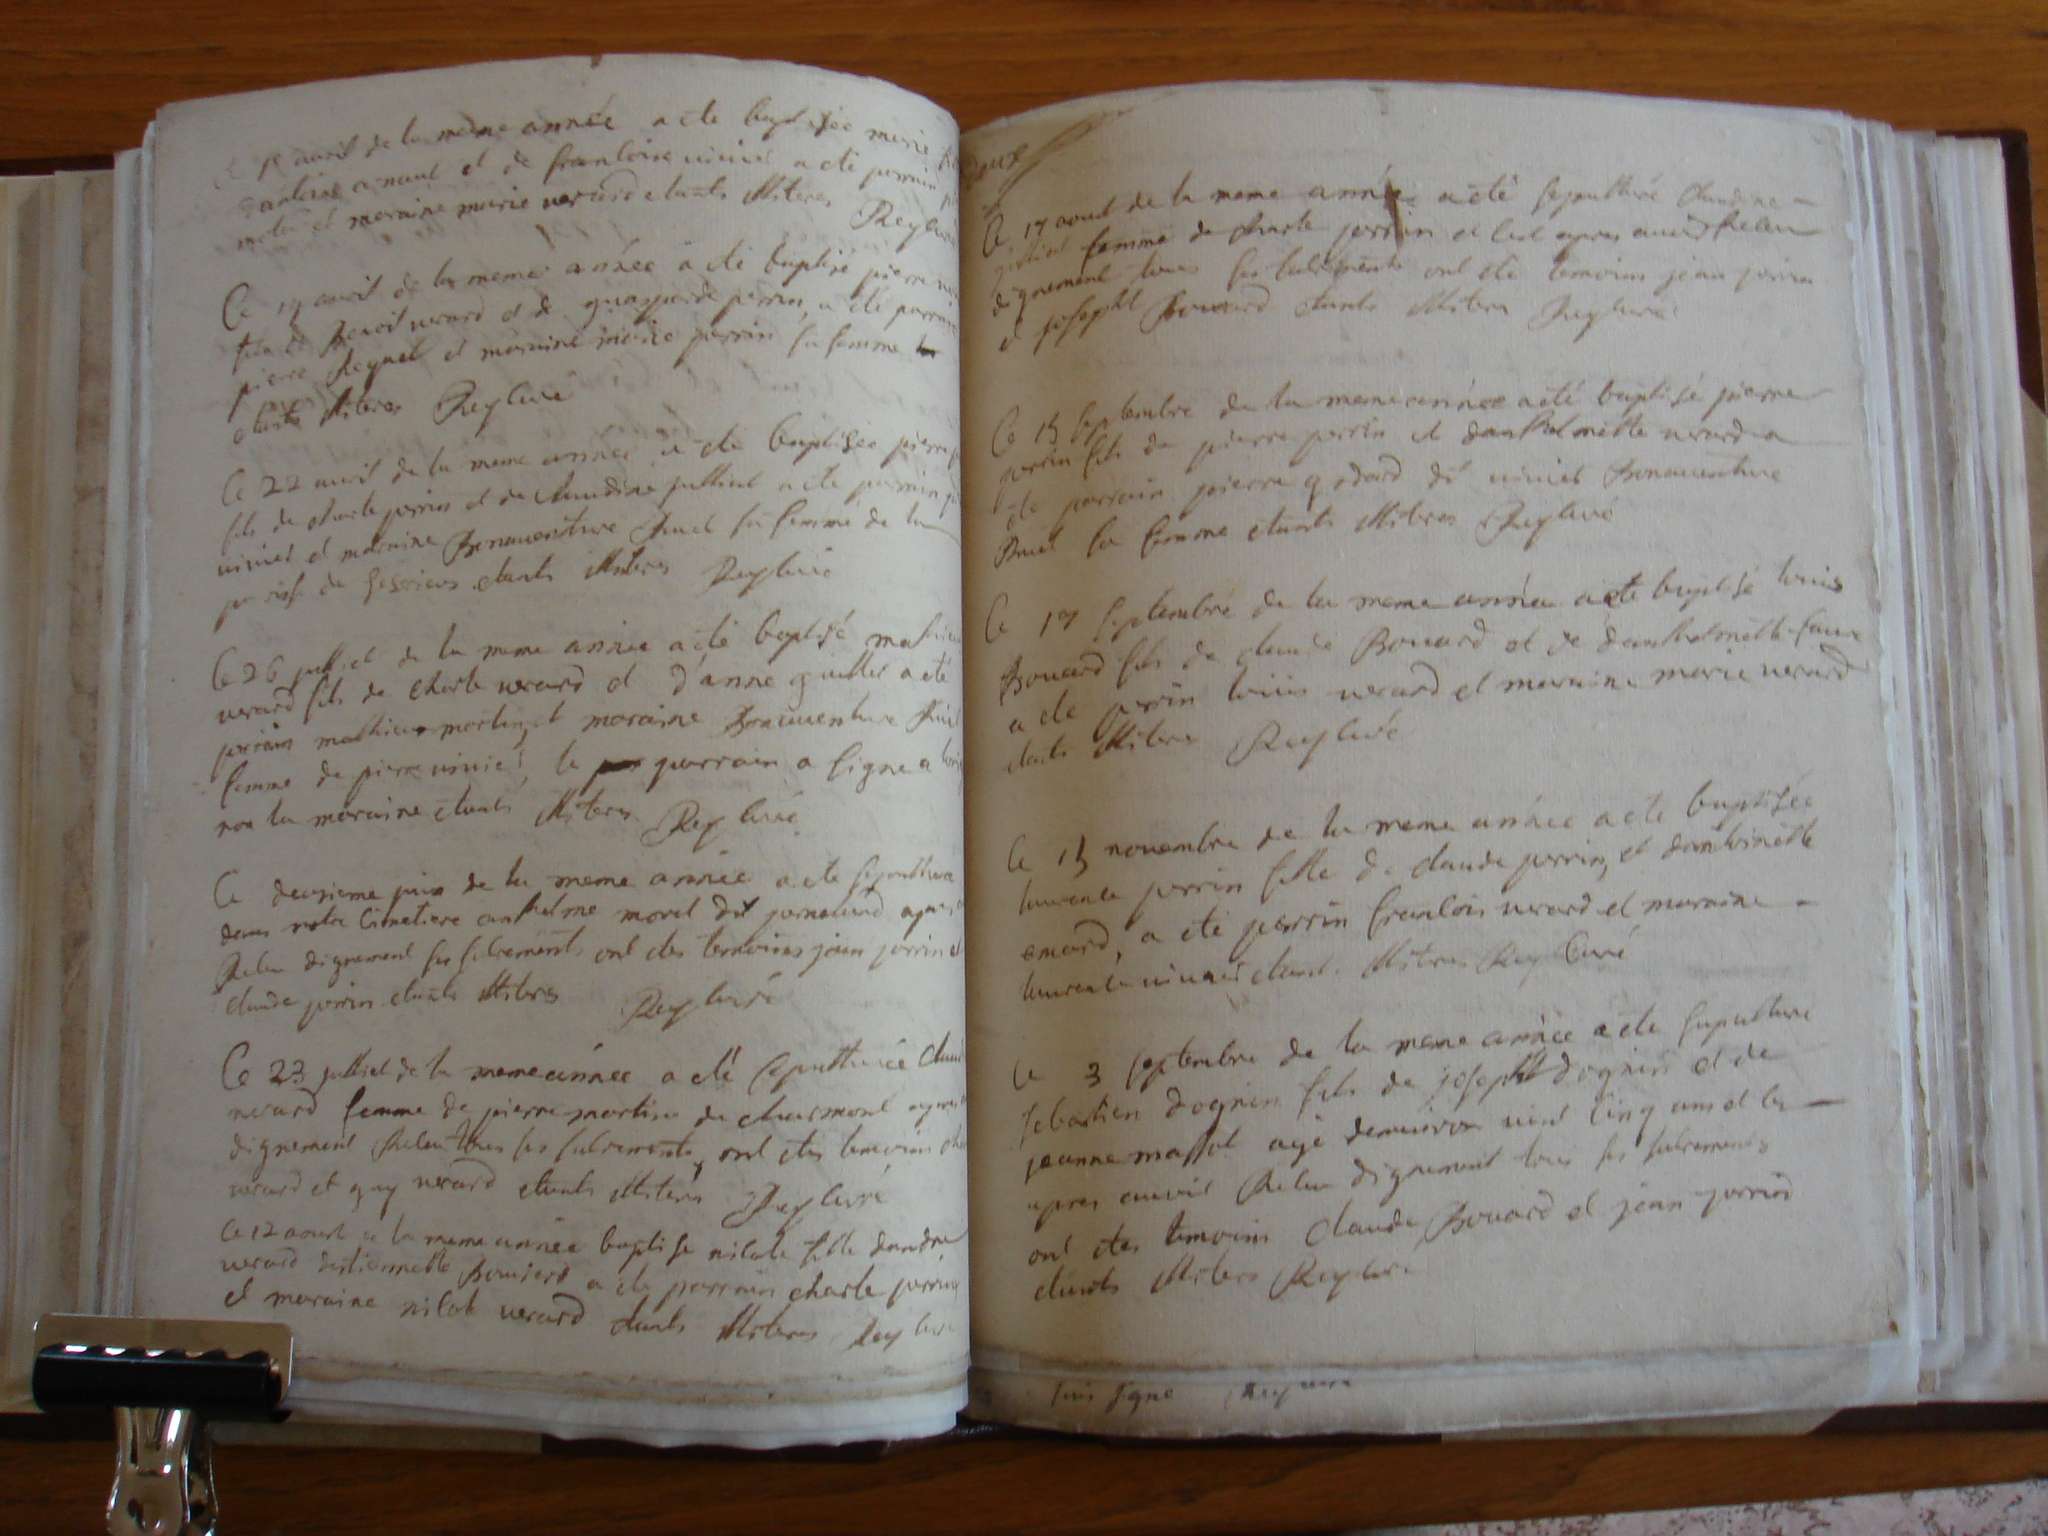 avril de la meme année a ete baptisée marie
et de francoise vivier a ete parrain
et maraine marie verard etants illiteres
Rey curé
Ce 19 avril de la meme année a été baptisé pierre
fils de benoit verard et de guasparde perrin, a ete parrain
pierre et maraine marie perrin sa femme
etants illiteres Rey curé
Ce 22 avril de la meme année a été baptisée pierre
fils de charle perrin et de claudine julliat a ete parrain
vivier et maraine Bonaventure Buel sa femme de la
etants illiteres Rey curé
Ce 26 julliet de la meme année a été baptisé mathieu
verard fils de charle verard et d'anne guillet a eté
parrain mathieu martin, et maraine Bonaventure Buel
femme de pierre vivier, le parrain a signe a
non la maraine etant illiteres Rey curé
Ce deuxieme juin de la meme année a ete sepulture
dans notre Cimetiere anthelme morel dit apres
Releu dignement ses sacrements ont etes temoins jean perrin et
claude perrin etants illiteres Rey curé
Ce 23 julliet de la meme année a eté sepulturée
verard femme de pierre martin de charmont
dignement Releu tous ses sacrements, ont etes temoins
verard et guy verard etants illiteres Rey curé
Ce 12 aout de la meme année baptise nicole fille dandre
verard destiennette Bouvard a ete parrain charle perrin
et maraine nicole verard etants illiteres Rey curé
Ce 17 aout de la meme année a eté sepulturé Claudine
femme de charle perrin et cest apres avoir Releu
dignement tous ses sacrements ont eté temoins jean perrin
et joseph Bouvard etants illiteres Rey curé
Ce 15 septembre de la meme année a eté baptisé pierre
perrin fils de pierre perrin et danthelmette verard a
ete parrain pierre godard dit vivier Bonaventure
Buel sa femme etants illiteres Rey curé
Ce 17 septembre de la meme année a ete baptisé louis
Bouvard fils de claude Bouvard et de danthelmette faure
a ete perrin louis verard et maraine marie verard
etants illiteres Rey curé
Ce 15 novembre de la meme année a ete baptisée
laurence perrin fille de claude perrin, et danthoinette
emard, a eté perrin francois verard et maraine
laurence vivier etant illiteres Rey Curé
Ce 3 septembre de la meme année a ete sepulture
sebastien dognin fils de joseph dognin et de
jeanne massot agé denviron vint cinq ans et ce
apres avoir Releu dignement tous ses sacrements
ont etes temoins claude Bouvard et jean perrin
etants illiteres Rey curé
signe Rey curé